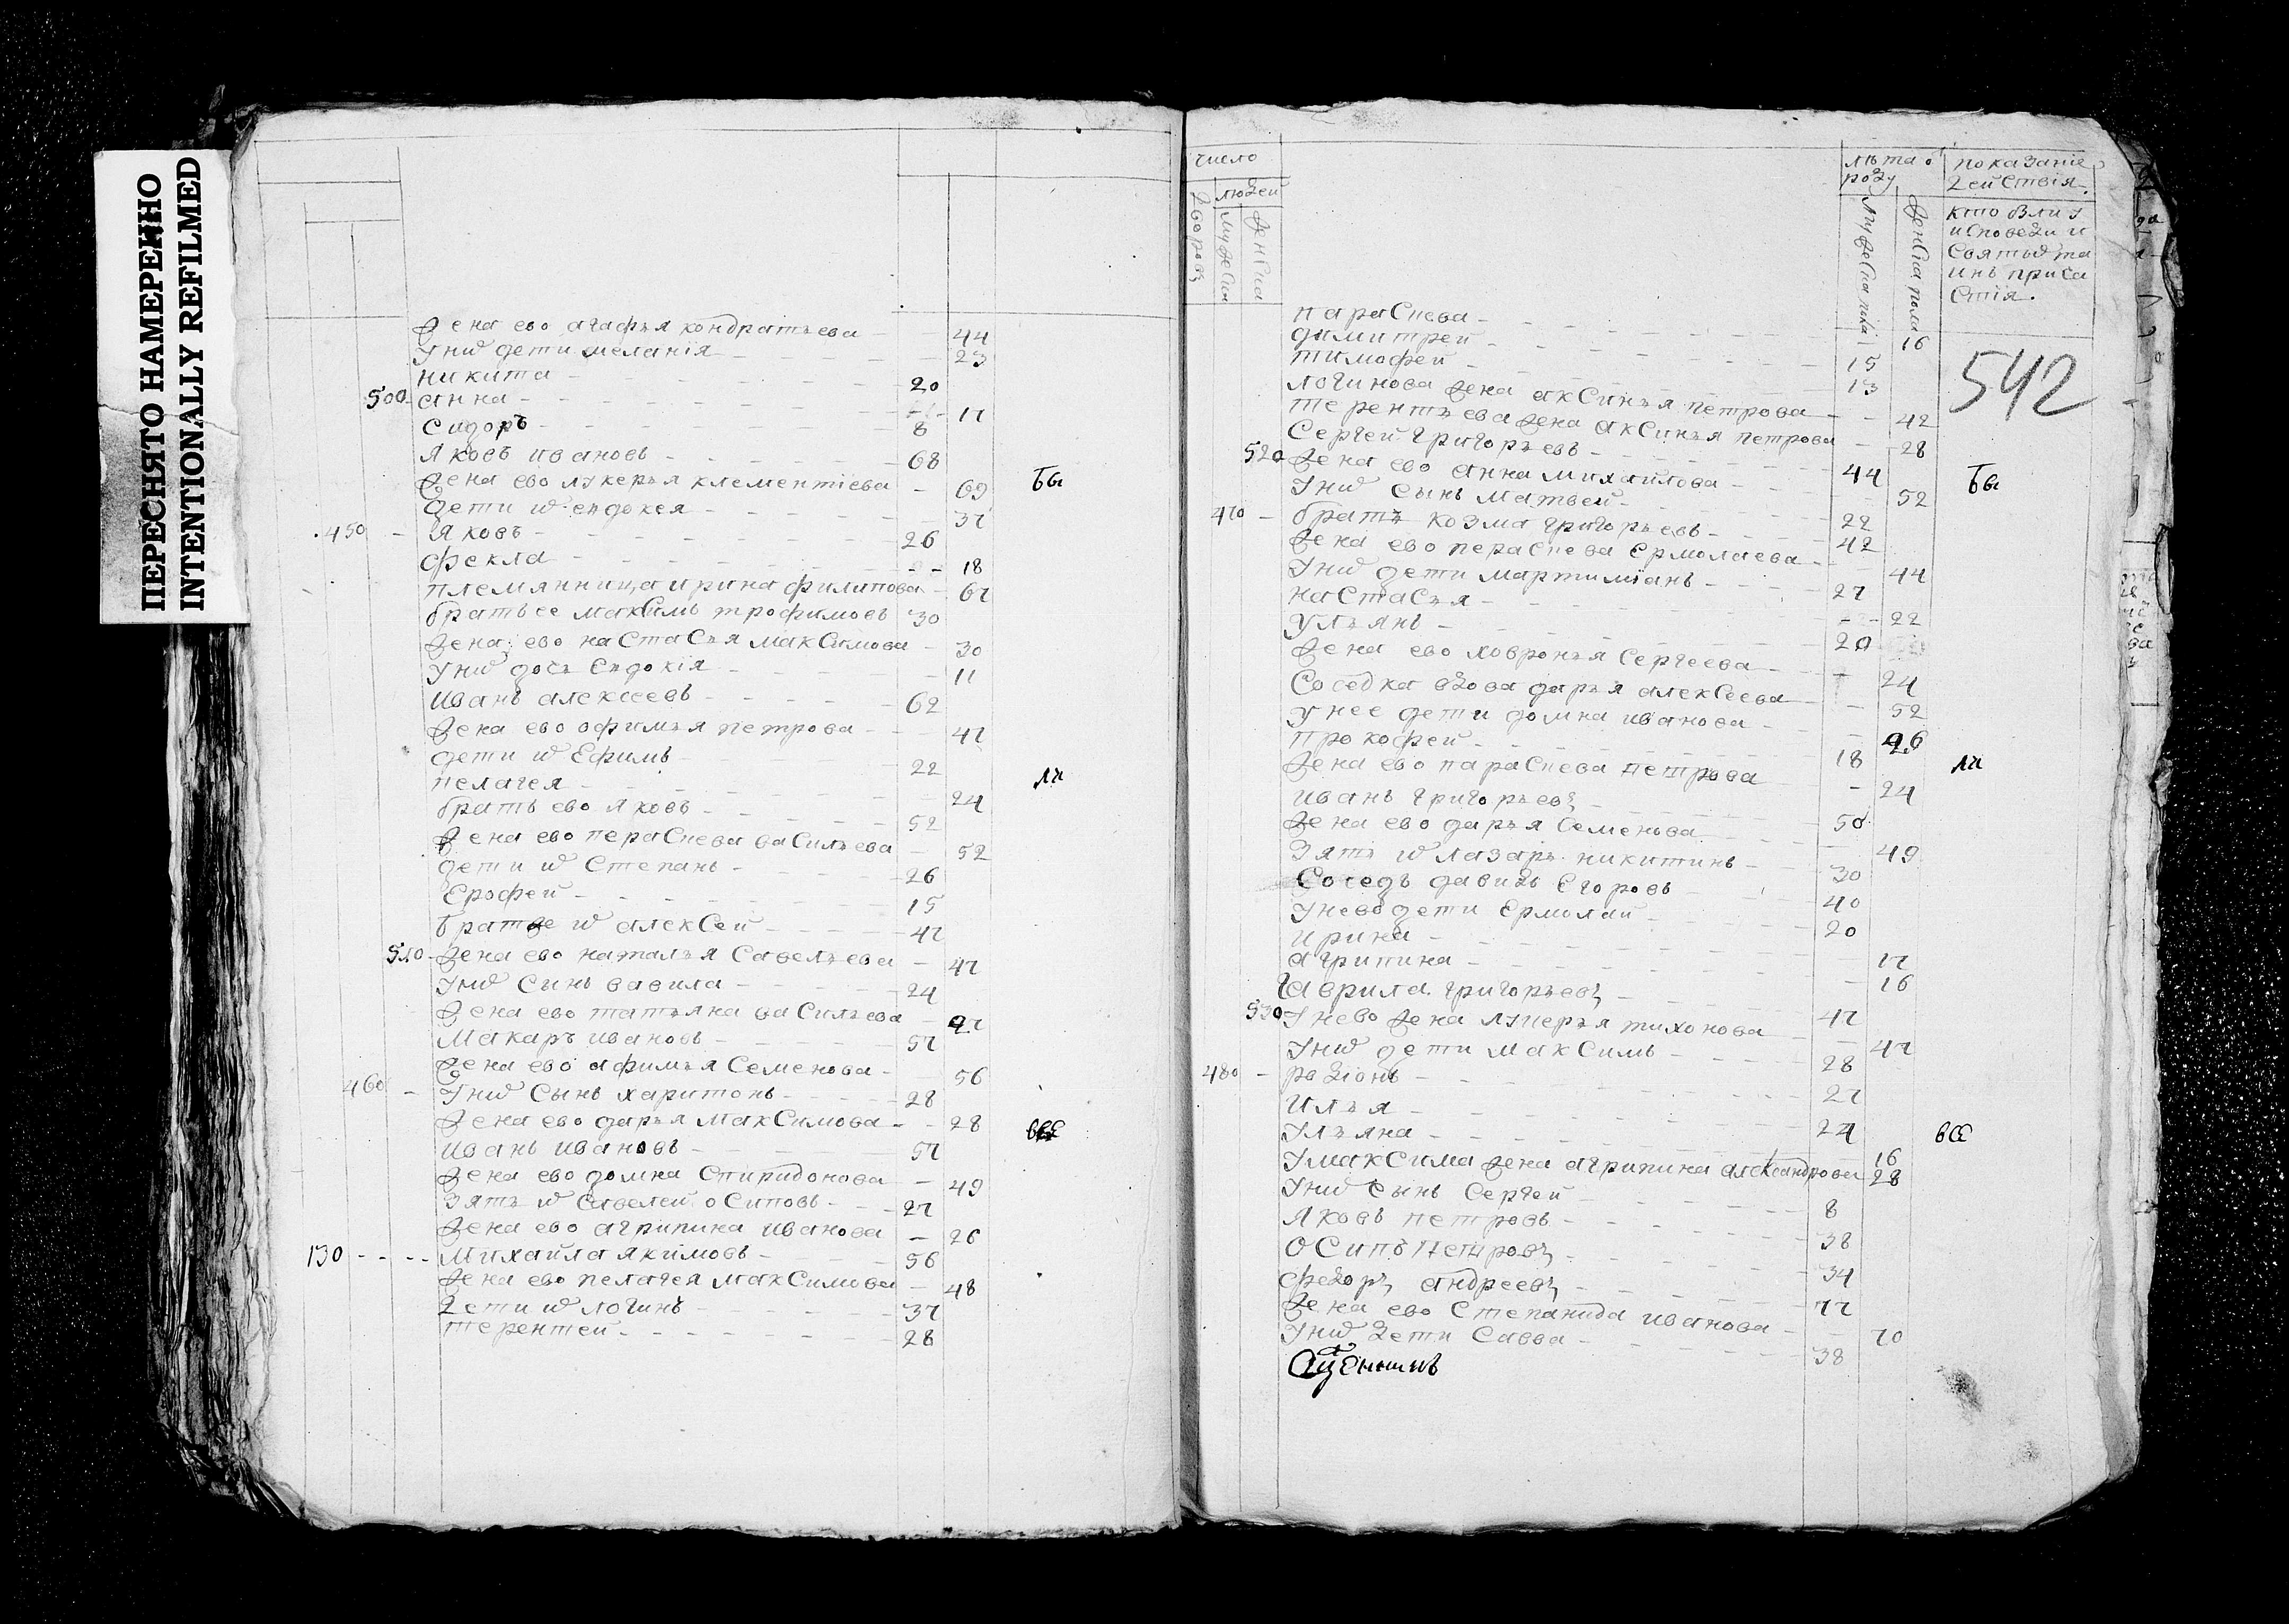 ПЕРЕСНЯТО НАМЕРЕННО
INTENTIONALLY REFILMED
Жена ево агафья кондратьева 44
У них дети меланія 23
никита 20
500 анна 17
сидоръ 8
яковъ ивановъ 68
Жена ево лукерья клементіева 69
Бы
дети их евдокея 37
450 яковъ 26
фекла 18
племянница ирина филипова 67
братъ ее максимъ трофимовъ 30
Жена ево настасья максимова 30
У них дочь Евдокія 11
иванъ алексеевъ 62
Жена ево офимья петрова 47
дети их Ефимъ 22
ли
пелагея 24
братъ ево яковъ 52
Жена ево пераскева васильева 52
дети их Степанъ 26
Ерофей 15
братъ же их алексей 47
510 Жена ево наталья Савельева 47
У них сынъ вавила 24
Жена ево татьяна васильева 27
Макаръ ивановъ 57
Жена ево афимья Семенова 56
460 У них сынъ харитонъ 28
Жена ево дарья максимова 28
все
иванъ ивановъ 57
Жена ево домна Спиридонова 49
Зять их савелей осиповъ 27
Жена ево агрипина иванова 26
130 Михайла якимовъ 56
Жена ево пелагея максимова 48
Дети их логинъ 37
терентей 28
число
дворовъ
людей
мужеска
женска
лѣта о роду
мужеска пола
женска пола
показаніе действія.
кто былъ у исповеди и святыхъ таинъ причастія.
542
параскева 16
димитрей 15
тимофей 13
логинова жена аксинья петрова 42
терентьева жена аксинья петрова 28
Сергей григорьевъ 44
520 Жена ево анна михайлова 52
Бы
У них сынъ матвей 22
470 братъ козма григорьевъ 42
Жена ево пераскева Ермолаева 44
У них дети мартиміанъ 27
настасья 22
ульянъ 20
Жена ево ховронья Сергеева 24
Соседка вдова дарья алексеева 52
У нее дети домна иванова 26
прокофей 18
ли
Жена ево параскева петрова 24
иванъ григорьевъ 50
Жена ево дарья Семенова 49
Зять их лазарь никитинъ 30
Соседъ давидъ Егоровъ 40
У нево дети Ермолай 20
ирина 17
агрипина 16
Гаврила григорьевъ 47
530 У нево жена лукерья тихонова 47
У них дети максимъ 28
480 радіонъ 27
илья 24
ульяна 16
все
У максима жена агрипина александрова 28
У них сынъ Сергей 8
яковъ петровъ 38
осипъ Петровъ 34
федоръ андреевъ 77
Жена ево Степанида иванова 70
У них дети Савва 38